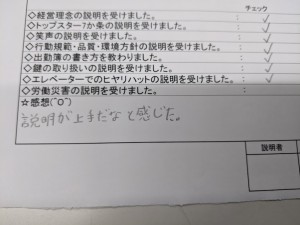 チェック
◇経営理念の説明を受けました。 ✓
◇トップスター7か条の説明を受けました。 ✓
◇笑声の説明を受けました。 ✓
◇行動規範・品質・環境方針の説明を受けました。 ✓
◇出勤簿の書き方を教わりました。 ✓
◇鍵の取り扱いの説明を受けました。 ✓
◇エレベーターでのヒヤリハットの説明を受けました。 ✓
◇労働災害の説明を受けました。
☆感想(^o^)
説明が上手だなと感じた。
説明者